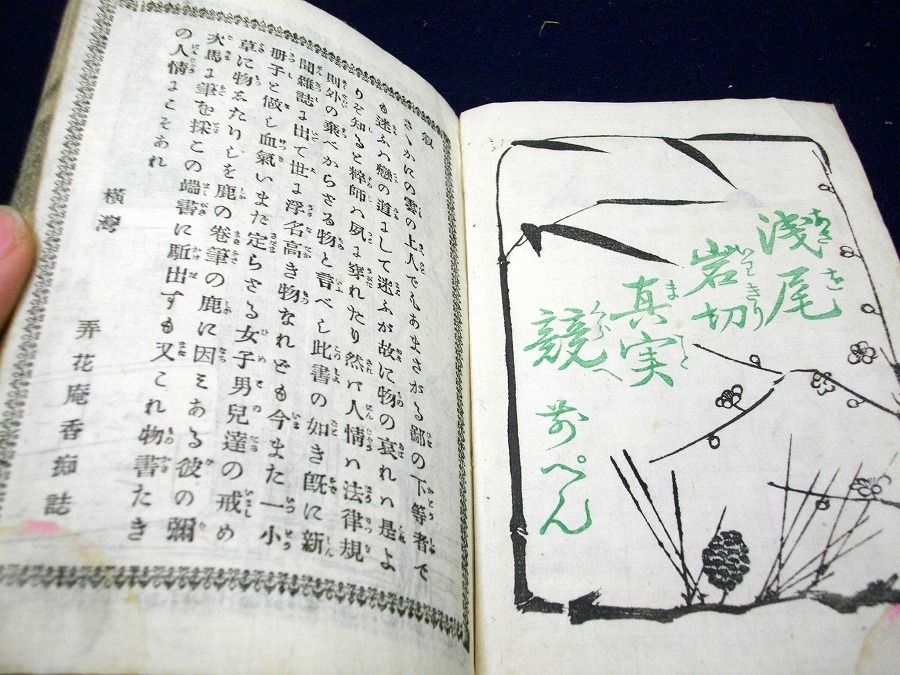 叙
さゝがにの雲の上人でもあまさがる鄙の下等者で
も迷ふハ戀の道まして迷ふが故に物の哀れハ是よ
りぞ知ると粹師ハ夙に穿れたり然バ人情ハ法律規
則外の乗べからざる物と言べし此書の如き既に新
聞雑誌に出て世に浮名高き物なれども今また一小
冊子と做し血氣いまだ定らざる女子男兒達の戒め
草に物ゑたりしを鹿の巻筆の鹿に因ある彼の彌
次馬に筆を採この端書に駈出すも又これ物書たき
の人情にこそあれ
橫灣 弄花庵香痴誌
浅尾
岩切
真実
競
前ぺん